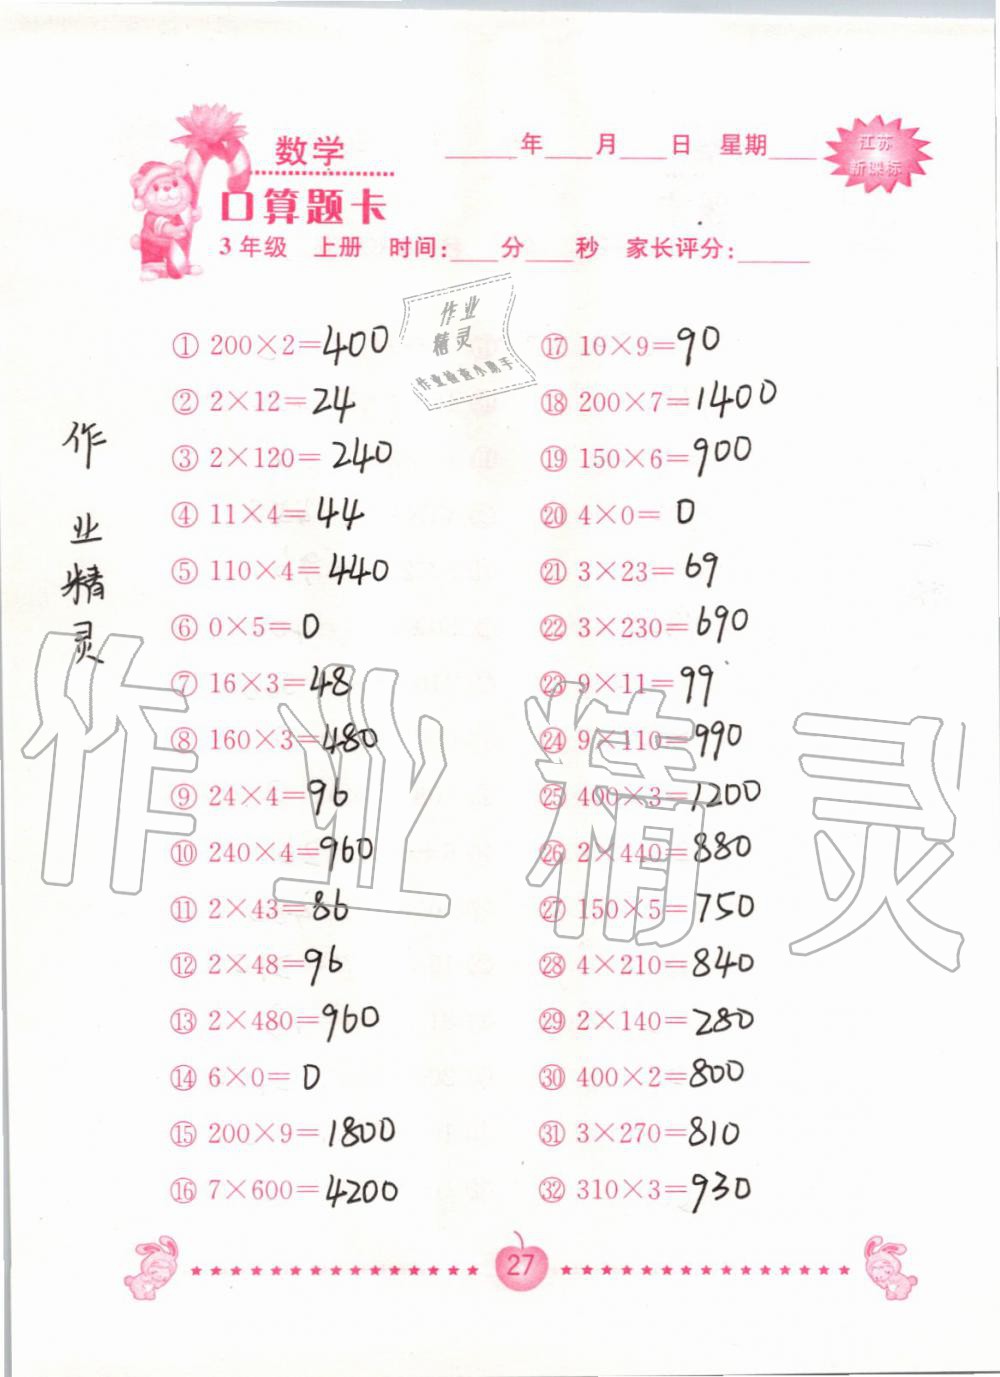 数学
____年____月____日 星期____
江苏
新课标
口算题卡
3年级 上册 时间:____分____秒 家长评分:____
作业
精灵
作业检查小助手
① 200×2=400
② 2×12=24
③ 2×120=240
④ 11×4=44
⑤ 110×4=440
⑥ 0×5=0
⑦ 16×3=48
⑧ 160×3=480
⑨ 24×4=96
⑩ 240×4=960
⑪ 2×43=86
⑫ 2×48=96
⑬ 2×480=960
⑭ 6×0=0
⑮ 200×9=1800
⑯ 7×600=4200
⑰ 10×9=90
⑱ 200×7=1400
⑲ 150×6=900
⑳ 4×0=0
㉑ 3×23=69
㉒ 3×230=690
㉓ 9×11=99
㉔ 9×110=990
㉕ 400×3=1200
㉖ 2×440=880
㉗ 150×5=750
㉘ 4×210=840
㉙ 2×140=280
㉚ 400×2=800
㉛ 3×270=810
㉜ 310×3=930
作业精灵
作业精灵
27